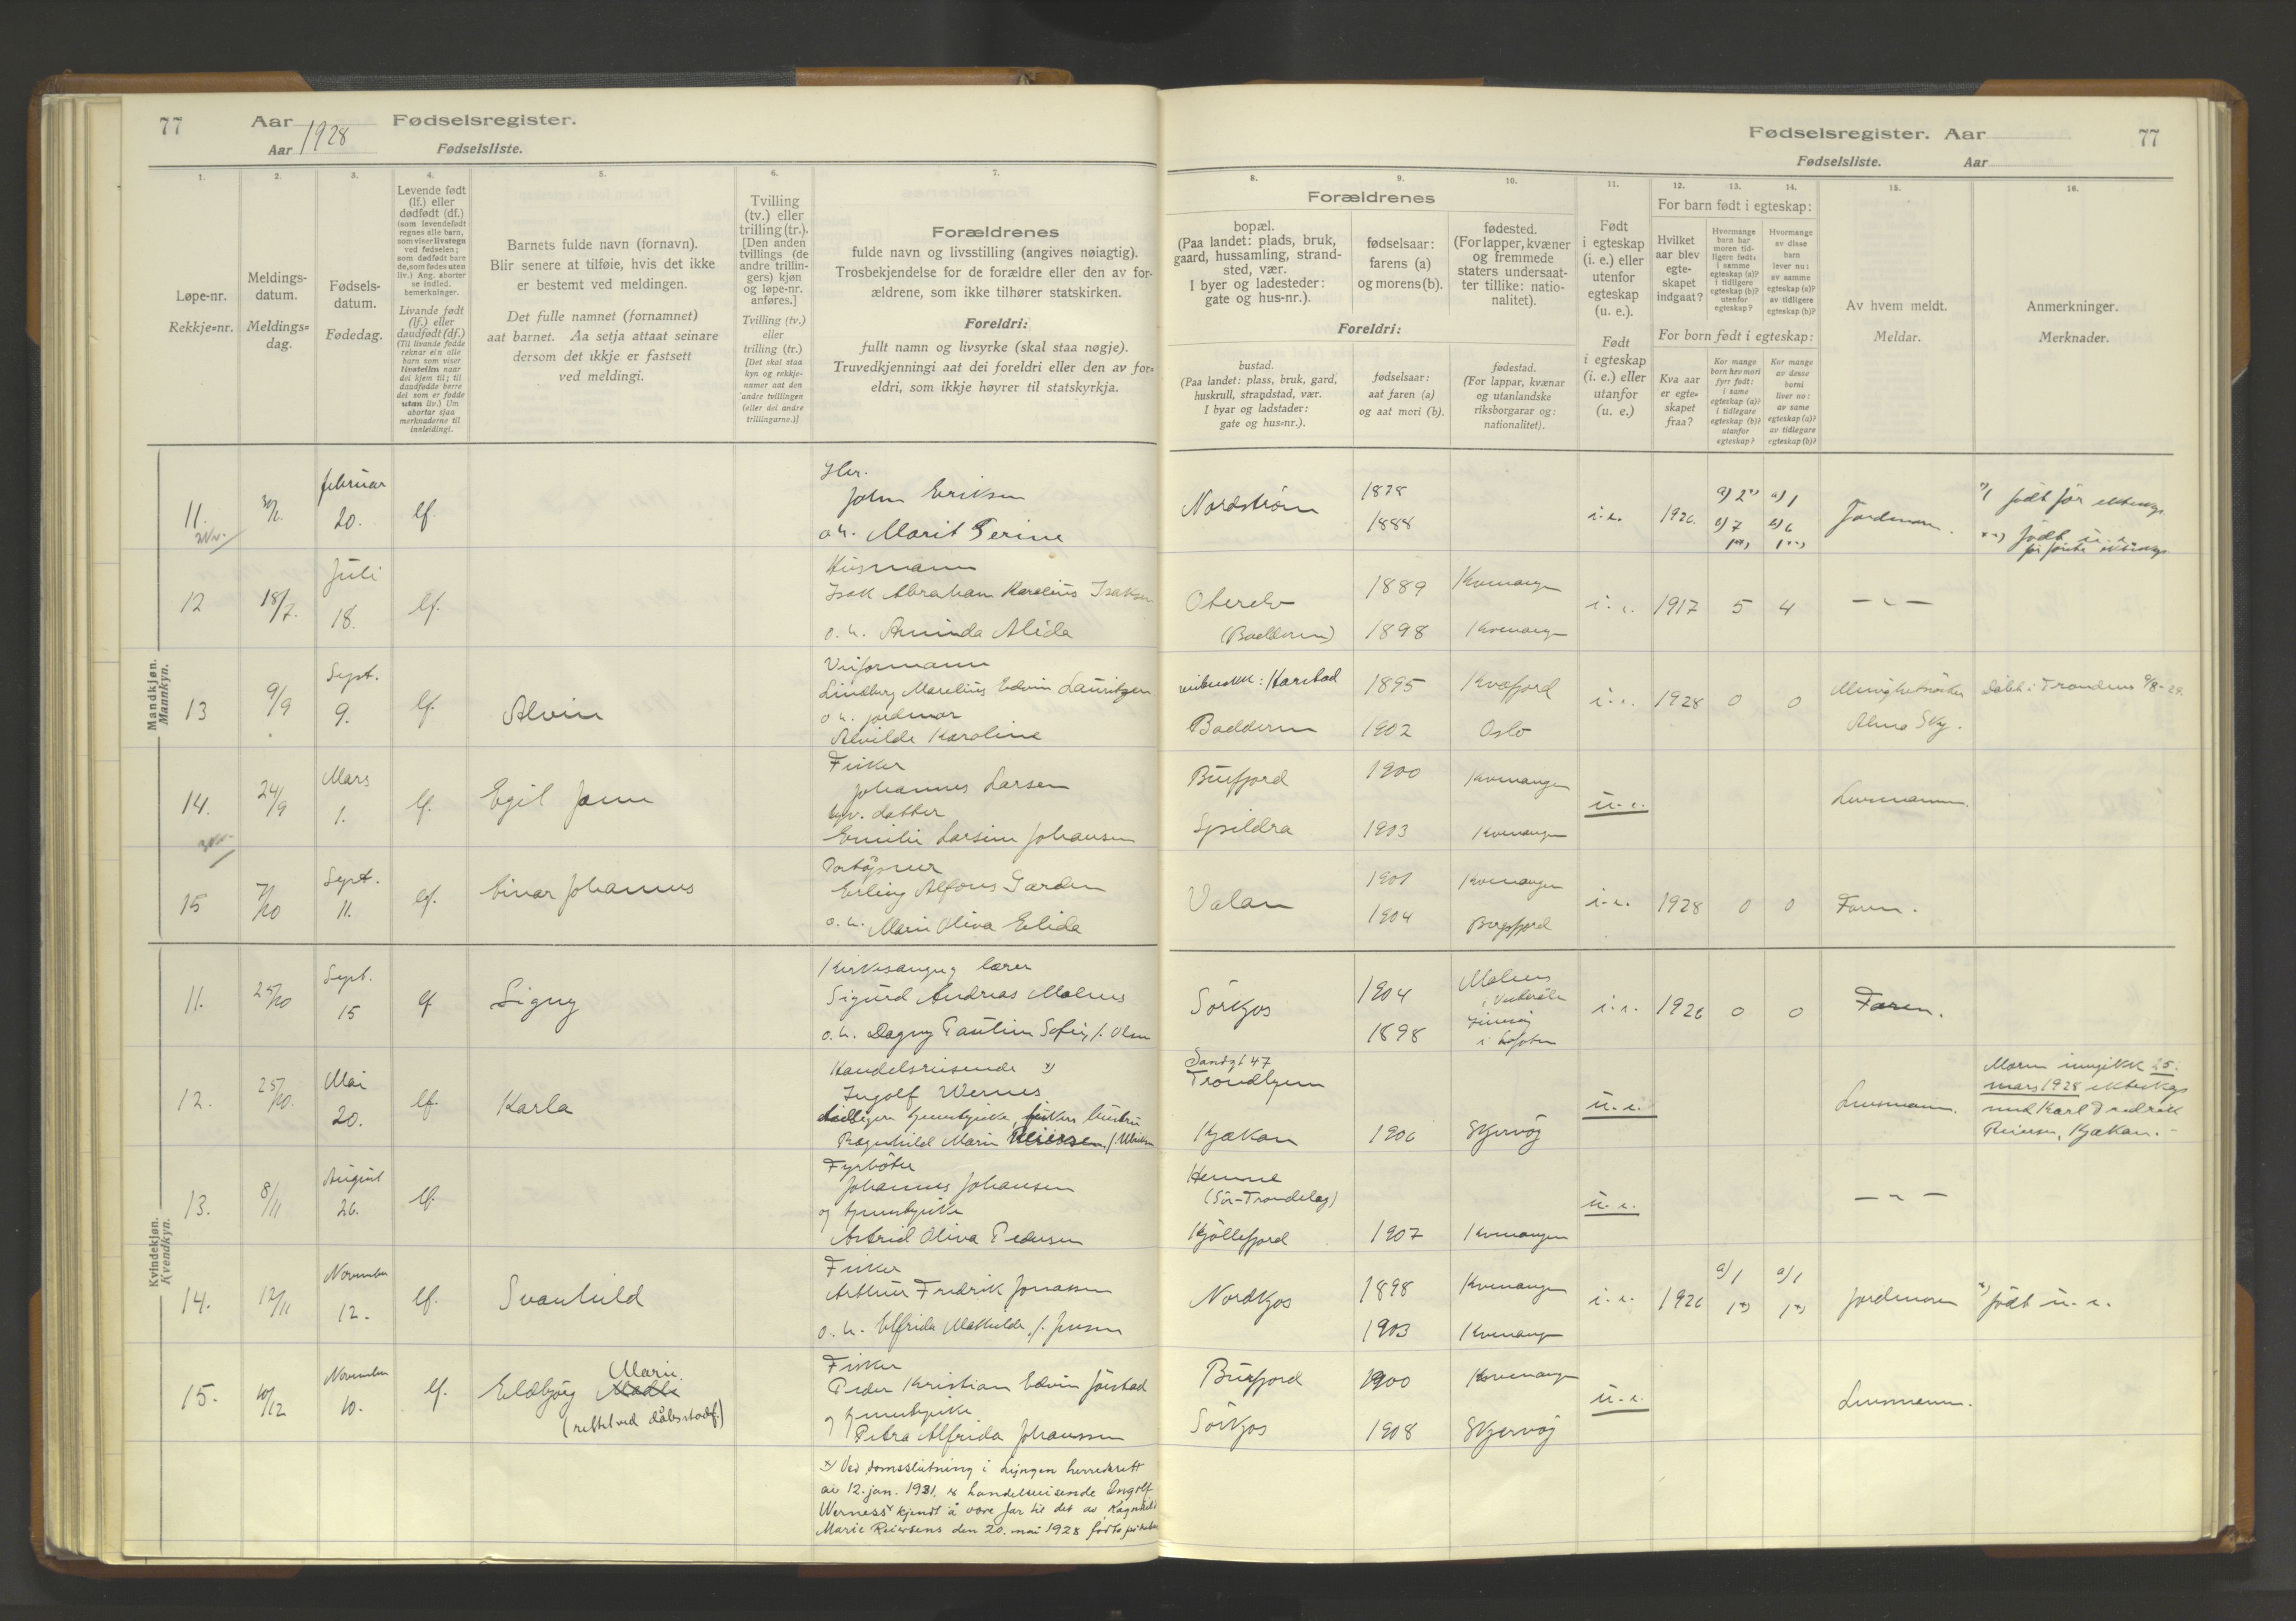 77 Aar 1928 Fødselsregister.
Aar Fødselsliste.
1. 2. 3. 4. 5. 6. 7.
Løpe-nr.
Rekkje=nr.
Meldings-
datum.
Meldings=
dag.
Fødsels-
datum.
Fødedag.
Levende født
(lf.) eller
dødfødt (df.)
(som levendefødt
regnes alle barn,
som viser livstegn
ved fødselen;
som dødfødt bare
de, som fødes uten
liv.) Ang. aborter
se indled.
bemerkninger.
Livande født
(lf.) eller
daudfødt (df.)
(Til livande fødde
reknar ein alle
barn som viser
livsteikn naar
dei kjem til; til
daudfødde berre
dei som er fødde
utan liv.) Um
abortar sjaa
merknaderne til
innleidingi.
Barnets fulde navn (fornavn).
Blir senere at tilføie, hvis det ikke
er bestemt ved meldingen.
Det fulle namnet (fornamnet)
aat barnet. Aa setja attaat seinare
dersom det ikkje er fastsett
ved meldingi.
Tvilling
(tv.) eller
trilling (tr.).
[Den anden
tvillings (de
andre trillin-
gers) kjøn
og løpe-nr.
anføres.]
Tvilling (tv.)
eller
trilling (tr.)
[Det skal staa
kyn og rekkje-
numer aat den
andre tvillingen
(eller dei andre
trillingarne.)]
Forældrenes
fulde navn og livsstilling (angives nøiagtig).
Trosbekjendelse for de forældre eller den av for-
ældrene, som ikke tilhører statskirken.
Foreldri:
fullt namn og livsyrke (skal staa nøgje).
Truvedkjenningi aat dei foreldri eller den av for=
eldri, som ikkje høyrer til statskyrkja.
Mandkjøn.
Mannkyn.
11. februar 20. lf.
John Eriksen
o. h. Marit Perine
12 18/7. Juli 18. lf.
Husmann
Isak Abraham Karelius Isaksen
o. h. Aminda Alida
13 9/9 Sept. 9. lf. Alvin
Lindberg Marelius Edvin Lauritzen
o h. jordmor
Alvilde Karoline
14. 24/9 Mars 1. lf. Egil
Fisker
Johannes Larsen
Emilie Larsine Johansen
15 7/10 Sept. 11. lf. Einar Johannes
Erling Alfons Garden
o. h. Marie Oliva Elida
Kvindekjøn.
Kvendkyn.
11. 25/10 Sept. 15 lf Signy
Kirkesanger, lærer
Sigurd Andreas Malnes
o. h. Dagny Pauline Sofie, f. Olsen
12. 25/10. Mai 20. lf. Karla
Handelsreisende x)
Ingolf Wernes
fiskers hustru
Ragnhild Marie Reiersen
13. 8/11 August 26. lf.
Fyrbøter
Johannes Johansen
og tjenestepike
Astrid Oliva Pedersen
14. 12/11 November 12. lf. Svanhild
Fisker
Arthur Fredrik Jonassen
o. h. Elfrida Mathilde, f. Jensen
15. 10/12 November 10. lf. Eldbjørg Marie
(rettet ved dåbsattest)
Fisker
Peder Kristian Edvin
og tjenestepike
Petra Alfrida Johansen
x) Ved domsslutning i Lyngen herredsrett
av 12. jan. 1931. er handelsreisende Ingolf
Werness kjendt å være far til det av Ragnhild
Marie Reiersens den 20. mai 1928 fødte pikebarn
Fødselsregister. Aar 77
Fødselsliste. Aar
8. 9. 10. 11. 12. 13. 14. 15. 16.
Forældrenes
bopæl.
(Paa landet: plads, bruk,
gaard, hussamling, strand-
sted, vær.
I byer og ladesteder:
gate og hus-nr.).
fødselsaar:
farens (a)
og morens (b).
fødested.
(For lapper, kvæner
og fremmede
staters undersaat-
ter tillike: natio-
nalitet).
Foreldri:
bustad.
(Paa landet: plass, bruk, gard,
huskrull, strandstad, vær.
I byar og ladstader:
gate og hus=nr.).
fødselsaar:
aat faren (a)
og aat mori (b).
fødestad.
(For lappar, kvænar
og utanlandske
riksborgarar og:
nationalitet).
Født
i egteskap
(i. e.) eller
utenfor
egteskap
(u. e.).
Født
i egteskap
(i. e.) eller
utanfor
(u. e.)
For barn født i egteskap:
Hvilket
aar blev
egte-
skapet
indgaat?
Hvormange
barn har
moren tid-
ligere født:
i samme
egteskap (a)?
i tidligere
egteskap (b)?
utenfor
egteskap?
Hvormange
av disse
barn
lever nu:
av samme
egteskap (a)?
av tidligere
egteskap (b)?
For born født i egteskap:
Kva aar
er egte=
skapet
fraa?
Kor mange
born hev mori
fyrr født:
i same
egteskap (a)?
i tidlegare
egteskap (b)?
utanfor
egteskap?
Kor mange
av desse
borni
liver no:
av same
egteskap (a)?
av tidlegare
egteskap (b)?
Av hvem meldt.
Meldar.
Anmerkninger.
Merknader.
Nordstrøm 1878 1888 i. e. 1926. a) 2 x) a) 1 b) 7 b) 6 1 xx) 1 xx) Jordmoren.
Oterelv 1889 Kvenangen i. e. 1917 5 4 — „ —
(Badderen) 1898 Kvenangen
Harstad 1895 Kvæfjord i. e. 1928 0 0 Døbt i Trondenes 9/8-29.
Badderen 1902 Oslo
Burfjord 1900 Kvenangen u. e. Lensmannen.
Spildra 1903 Kvenangen
Valan 1901 Kvenangen i. e. 1928 0 0 Faren.
1904 Bergsfjord
Sørkjos 1904 Malnes i Vesterålen i. e. 1926 0 0 Faren.
1898 i Lofoten
Sandgt 47
Trondhjem u. e. Lensmann.
Kjækan 1906 Skjervøy
Moren inngikk 25.
mars 1928 ekteskap
med Karl Fredrik
Reiersen, Kjækan.
Hemne
(Sør-Trøndelag) u. e. — „ —
Kjøllefjord 1907 Kvenangen
Nordkjos 1898 Kvenangen i. e. 1926 a) 1 a) 1 1 x) 1 x) Jordmoren x) født u. e.
1903 Kvenangen
Burfjord 1900 Kvenangen u. e. Lensmannen.
Sørkjos 1908 Skjervøy